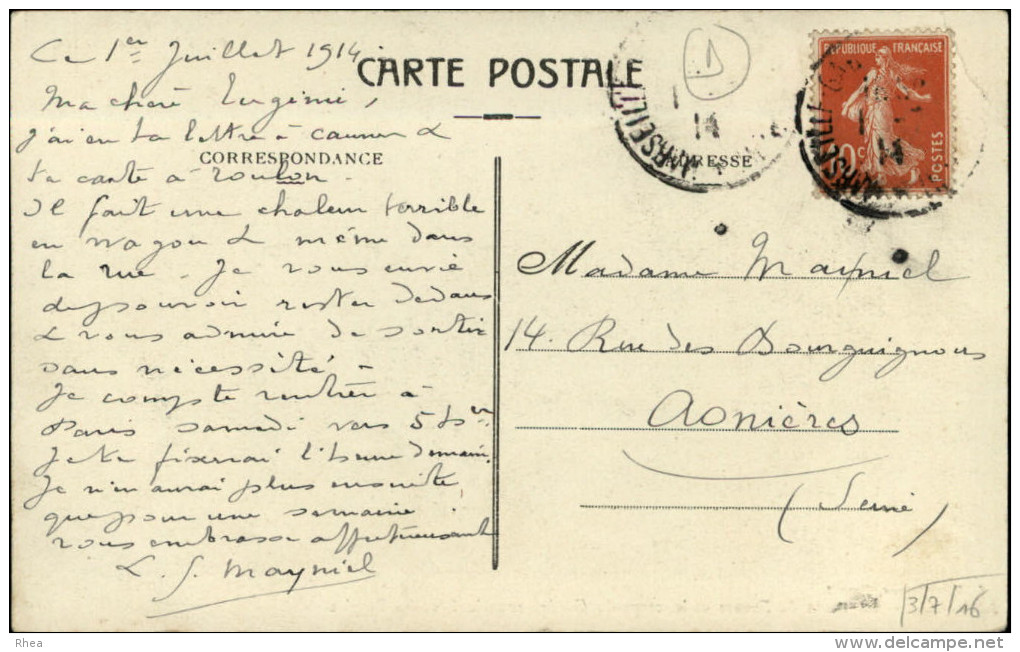 Ce 1er Juillet 1914
CARTE POSTALE
Ma chère Eugénie,
j'ai eu ta lettre à Cannes &
CORRESPONDANCE
ADRESSE
ta carte à Toulon.
Il fait une chaleur terrible
en wagon & même dans
la rue. Je vous envie
de pouvoir rester dedans
& vous admire de sortir
sans nécessité.
Je compte rentrer à
Paris samedi vers 5h
Je te fixerai l'heure demain.
Je n'en aurai plus ensuite
que pour une semaine.
vous embrasse affectueusement
L. J. Mayniel
REPUBLIQUE FRANÇAISE
10c
POSTES
MARSEILLE
14
MARSEILLE
14
D
Madame Mayniel
14. Rue des Bourguignons
Asnières
(Seine)
3/7/16
Rhea
www.delcampe.net